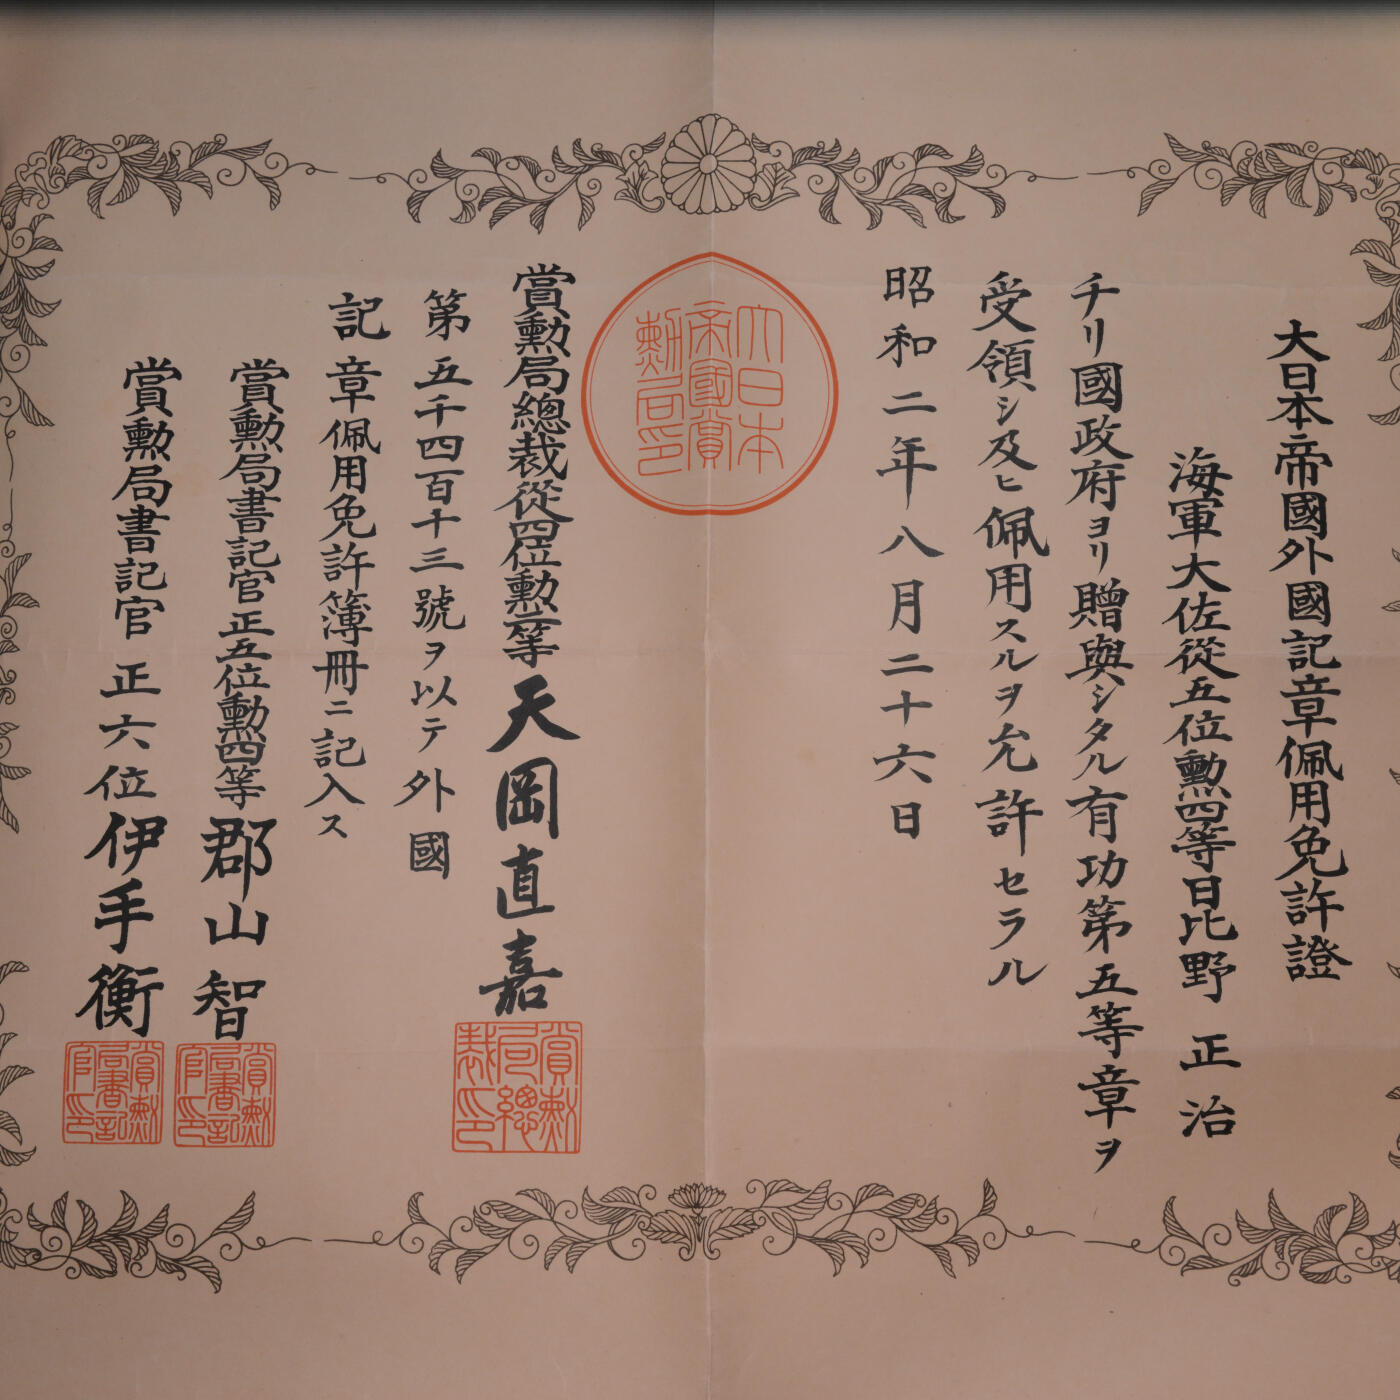 大日本帝國外國記章佩用免許證
海軍大佐從五位勲四等日比野正治
チリ國政府ヨリ贈與シタル有功第五等章ヲ
受領シ及ヒ佩用スルヲ允許セラル
昭和二年八月二十六日
大日本
帝國賞
勲局印
賞勲局總裁從四位勲二等天岡直嘉
賞勲
局總
裁印
第五千四百十三號ヲ以テ外國
記章佩用免許簿冊ニ記入ス
賞勲局書記官正五位勲四等郡山智
賞勲
局書記
官印
賞勲局書記官正六位伊手衡
賞勲
局書記
官印